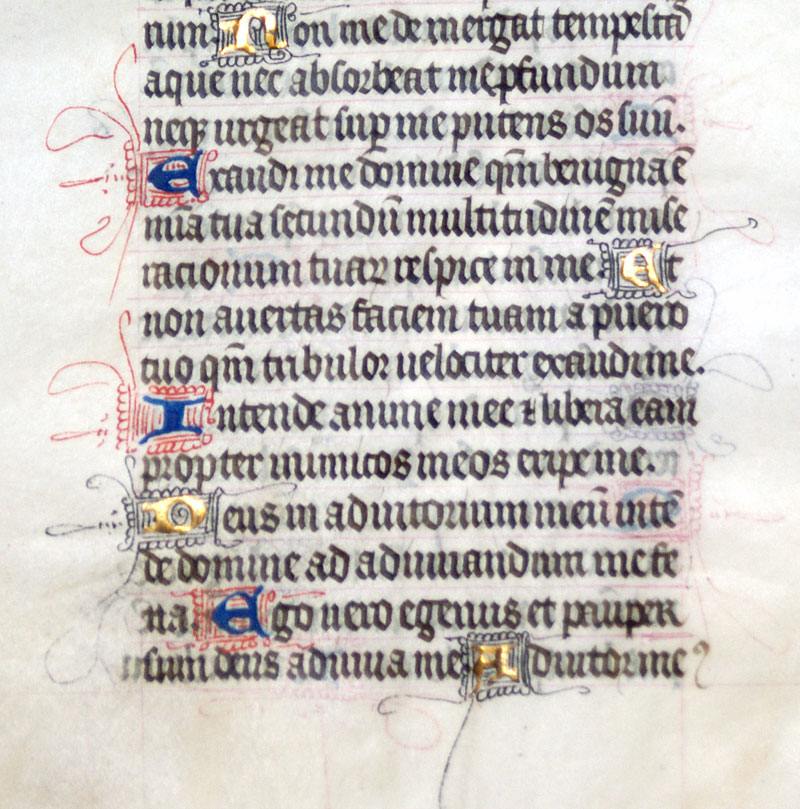 num. Non me demergat tempestas
aque nec absorbeat me ꝓfundum
neqꝫ urgeat suꝑ me puteus os suū.
Exaudi me domine qm̄ benigna ē
mīa tua secundū multitudinē mise
racionum tuaꝝ respice in me. Et
non auertas faciem tuam a puero
tuo qm̄ tribulor uelociter exaudi me.
Intende anime mee ⁊ libera eam
propter inimicos meos eripe me.
Deus in adiutorium meū intē
de domine ad adiuuandum me fe
na. Ego uero egenus et pauper
sum deus adiuua me. Adiutor me